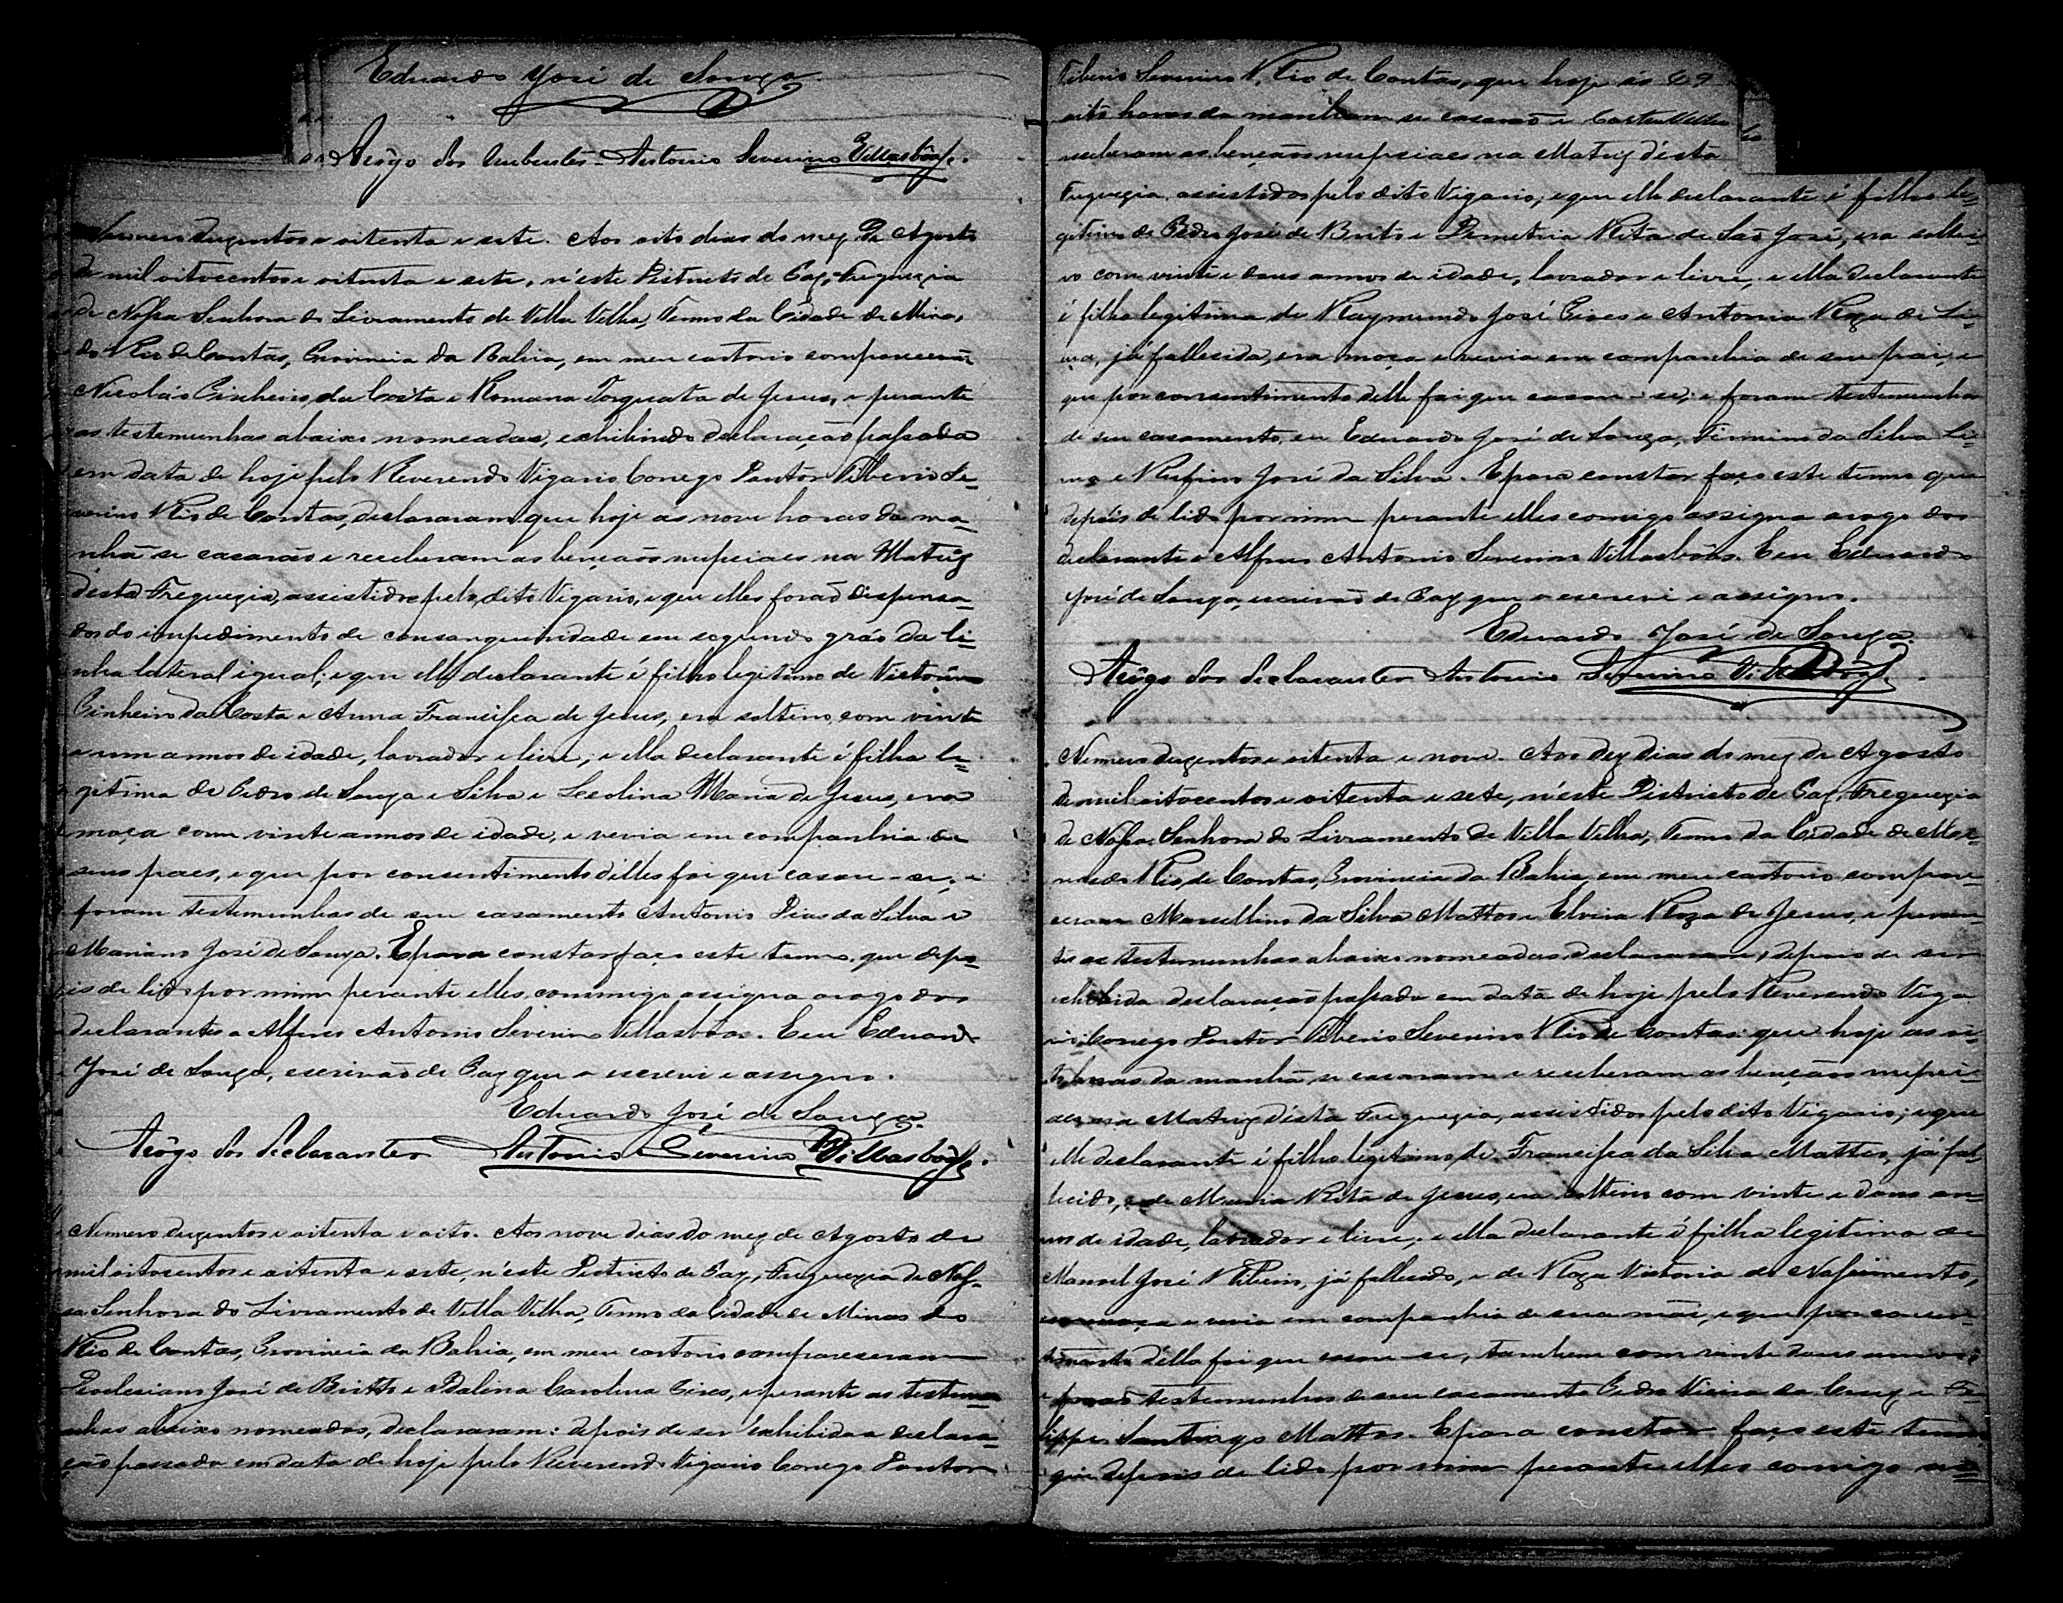 Eduardo José de Souza
Arôgo dos Nubentes Antonio Severino Villasbôas.
Numero duzentos e oitenta e sete. Aos oito dias do mez de Agosto
de mil oitocentos e oitenta e sete, n'éste Districto de Paz, Freguezia
de Nossa Senhora do Livramento de Villa Velha, Termo da Cidade de Minas
do Rio de Contas, Provincia da Bahia, em meu cartorio compareceram
Nicoláo Pinheiro da Costa e Romana Torquata de Jesus, e perante
as testemunhas abaixo nomeadas, exhibindo declaração passada
em data de hoje pelo Reverendo Vigario Conego Doutor Tiberio Se-
verino Rio de Contas, declararam que hoje as nove horas da ma-
nhã se casarão e receberam as bençaõs nupciaes na Matriz
désta Freguezia, assistidos pelo dito Vigario, e que elles foraõ dispensa-
dos do impedimento de consanguinidade em segundo gráo da li-
nha lateral igual; e que elle declarante é filho legitimo de Victorino
Pinheiro da Costa e Anna Francisca de Jesus, era solteiro, com vinte
e um annos de idade, lavrador e livre; e ella declarante é filha le-
gitima de Pedro de Souza e Silva e Maria de Jesus, era
moça com vinte annos de idade, e vevia em companhia de
seus paes, e que por consentimento d'elles foi que casou-se; e
foram testemunhas de seu casamento Antonio Dias da Silva e
Mariano José de Souza. E para constar faço este termo, que depo-
is de lido por mim perante elles, commigo assigna arogo dos
declarantes o Alferes Antonio Severino Villasbôas. E eu Eduardo
José de Souza, escrivaõ de Paz que o escrevi e assigno.
Eduardo José de Souza.
Arôgo dos declarantes Antonio Severino Villasbôas.
Numero duzentos e oitenta e oito. Aos nove dias do mez de Agosto de
mil oitocentos e oitenta e sete, n'éste Districto de Paz, Freguezia de Nos-
sa Senhora do Livramento de Villa Velha, Termo da Cidade de Minas do
Rio de Contas, Provincia da Bahia, em meu cartorio compareceram
José de Britto e Idalina Carolina Pires, e perante as testemu-
nhas abaixo nomeadas, declararam: depois de ser exhibida a declara-
ção passada em data de hoje pelo Reverendo Vigario Conego Doutor
Tiberio Severino Rio de Contas, que hoje ás 69
oito horas da manhã se casaraõ e
receberam as bençaõs nupciaes na Matriz désta
Freguezia, assistidos pelo dito Vigario; e que elle declarante é filho le-
gitimo de Pedro José de Brito e Demetria Rita de Saõ José, era soltei-
ro com vinte e dous annos de idade, lavrador e livre, e ella declarante
é filha legitima de Raymundo José Pires e Antonia Roza de
já fallecida, era moça e vevia em companhia de seu pai, e
que por consentimento delle foi que casou-se; e foram testemunhas
de seu casamento, eu Eduardo José de Souza, Firmino da Silva Li-
ma e Rufino José da Silva. E para constar faço este termo que
depois de lido por mim perante elles comigo assigna arogo dos
declarantes o Alferes Antonio Severino Villasbôas. E eu Eduardo
José de Souza, escrivaõ de Paz que o escrevi e assigno.
Eduardo José de Souza.
Arôgo dos declarantes Antonio Severino Villasbôas.
Numero duzentos e oitenta e nove. Aos dez dias do mez de Agosto
de mil oitocentos e oitenta e sete, n'éste Districto de Paz, Freguezia
de Nossa Senhora do Livramento de Villa Velha, Termo da Cidade de Mi-
nas do Rio de Contas, Provincia da Bahia, em meu cartorio compare-
ceram Marcellino da Silva Mattos e Elvira Roza de Jesus, e peran-
te as testemunhas abaixo nomeadas, declararam, depois de ser
exhibida declaração passada em data de hoje pelo Reverendo Viga-
rio Conego Doutor Tiberio Severino Rio de Contas: que hoje as oi-
to horas da manhã se casaram e receberam as bençaõs nupci-
aes na Matriz désta Freguezia, assistidos pelo dito Vigario; e que
elle declarante é filho legitimo de Francisco da Silva Mattos, já fal-
lecido, e de Maria Rita de Jesus, era solteiro com vinte e dous an-
nos de idade, lavrador e livre; e ella declarante é filha legitima de
Manoel José Ribeiro, já fallecido, e de Roza Victoria do Nascimento,
era moça e vevia em companhia de sua mãe, e que por consen-
timento délla foi que casou-se, tambem com vinte dous annos;
e foraõ testemunhas de seu casamento Pedro Vieira da Cruz e Fe-
lippe Santiago Mattos. E para constar faço este termo
que depois de lido por mim perante elles comigo as-